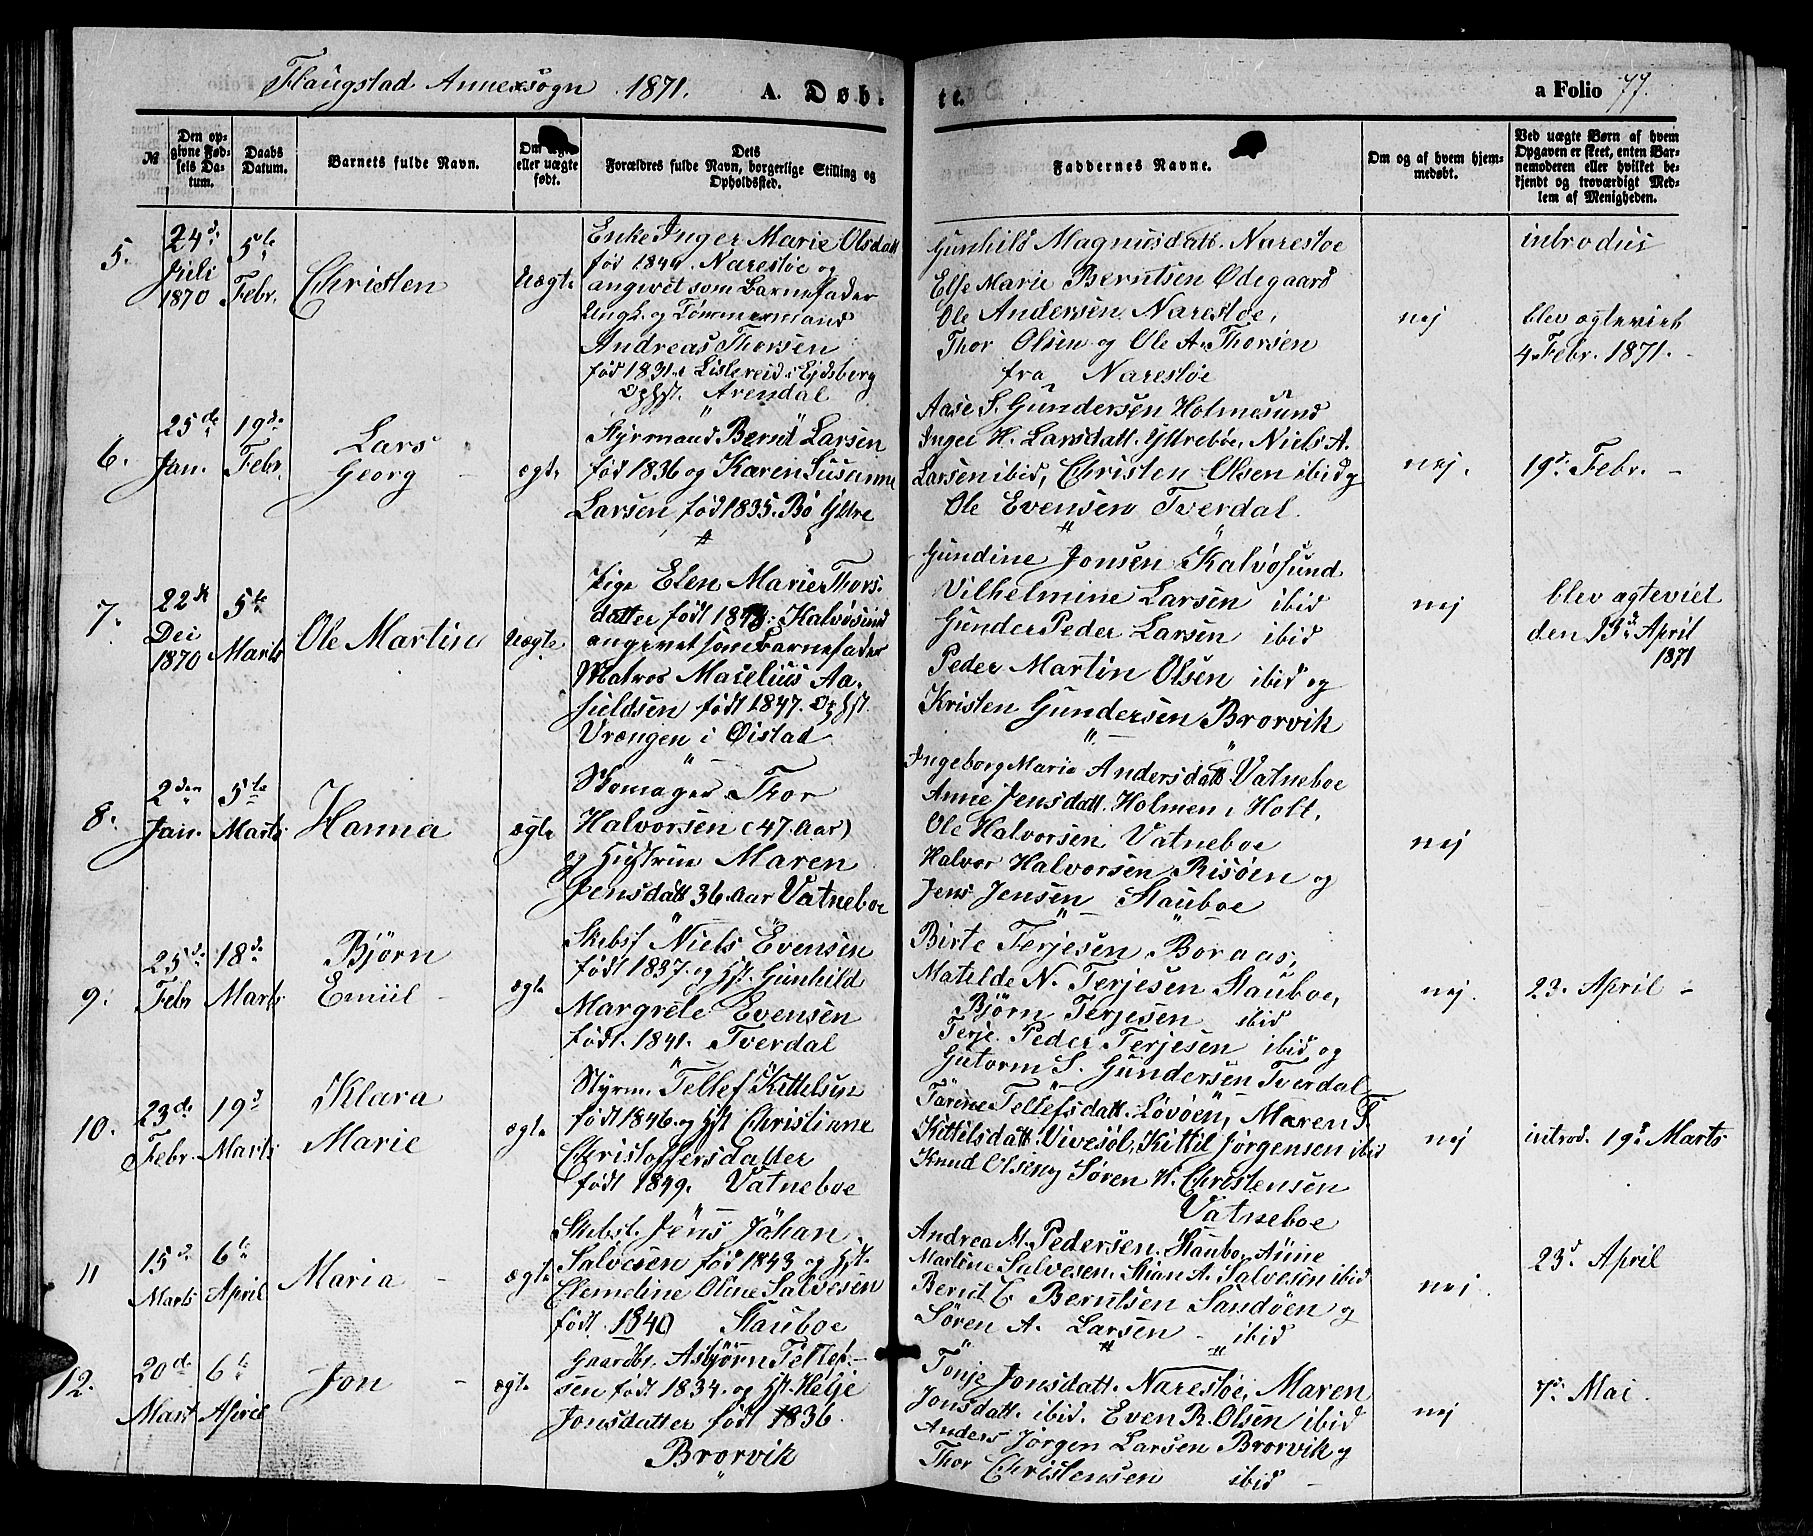 Flaugstad Annexsogn 1871. A. Døb-
te.
a Folio 77.
№
Den opgivne Fødsels Datum.
Daabs Datum.
Barnets fulde Navn.
Om Ægte eller uægte født.
Dets Forældres fulde Navn, borgerlige Stilling og Opholdssted.
Faddernes Navne.
Om og af hvem hjemmedøbt.
Ved uægte Børn af hvem Opgaven er skeet, enten Barnemoderen eller hvilket bekjendt og troværdigt Medlem af Menigheden.
5.
24d Juli 1870
5te Febr.
Christen
Uægte
Enke Inger Marie Olsdatt
fød 1844. Narestøe og
angivet som Barnefader
Ungk. og Tømmermand
Andreas Thorsen
fød 1831. Lislereid i Ejdsberg
Ophst. Arendal
Gunhild Magnusdatt. Narestoe
Else Marie Berntsen Ødegaard
Ole Andersen Narestøe,
Thor Olsen og Ole A. Thorsen
fra Narestøe
nej
introdus
blev ægteviet
4 Febr. 1871.
6.
25de Jan.
19de Febr.
Lars
Georg
ægte
Styrmand Bernt Larsen
fød 1836 og Karen Susanne
Larsen, fød 1835. Bø Yttre
Aase S. Gundersen Holmesund
Inger H. Larsdatt. Yttrebøe, Niels A.
Larsen ibid, Christen Olsen ibid og
Ole Evensen Tverdal.
nej.
19d Febr. -
7.
22de Dei 1870
5te Marts
Ole Martin
Uægte
Pige Elen Marie Thors-
datter født 1848. Kalvøsund
angivet som Barnefader
Matros Maselius Aa-
sieldsen født 1847. Ophst.
Vrængen i Øistad
Gundine Jonsen Kalvøsund
Vilhelmine Larsen ibid
Gunder Peder Larsen ibid
Peder Martin Olsen ibid og
Kristen Gundersen Brorvik
nej
blev ægteviet
den 13d April
1871
8.
2den Jan.
5te Marts
Hanna
ægte
Thor
Halvorsen (47 Aar)
og Hustrue Maren
Jensdatt 36 Aar Vatneboe
Ingeborg Marie Andersdatt. Vatneboe
Anne Jensdatt. Holmen i Holt,
Ole Halvorsen Vatneboe
Halvor Halvorsen Risøen og
Jens Jensen Stauboe
nej
9.
25de Febr
18d Marts
Bjørn
Emiil -
ægte
Skibsf. Niels Evensen
født 1837 og Hst. Gunhild
Margrete Evensen
født. 1841. Tverdal
Birte Terjesen Boraas,
Matilde N. Terjesen Stauboe,
Bjørn Terjesen ibid
Terje Peder Terjesen ibid og
Gutorm S. Gundersen Tverdal
nej.
23. April -
10.
23de Febr.
19d Marts
Klara
Marie
ægte
Styrm. Tellef Kittelsen
født 1846. og Hst Christianne
Christoffersdatter
født 1849. Vatneboe
Tarine Tellefsdatt. Løvøen, Maren T.
Kittilsdatt. Vivesøl, Kittil Jørgensen ibid
Knud Olsen og Søren K. Christensen
Vatneboe
nej
introd. 19d Marts
11
15d Marts
6te April
Maria -
ægte
Skibst. Jens Johan
Salvesen fød 1843 og Hst.
Clemetine Oline Salvesen
født 1840 Stauboe
Andrea M. Pedersen. Stauboe, Anne
Marlene Salvesen. Stian A. Salvesen ibid
Bernt C Berntsen Sandøen og
Søren A. Larsen - ibid
nej.
23d April
12.
20de Mart
6te April
Jon -
ægte
Gaardbr. Asbjørn Tellef-
sen født 1834. og Hst. Helje
Jonsdatter født 1836.
Brorvik
Tonje Jonsdatt. Narestøe, Maren
Jonsdatt. ibid. Even R. Olsen ibid
Anders Jørgen Larsen Brorvik og
Thor Christensen ibid -
nej
7d Mai.